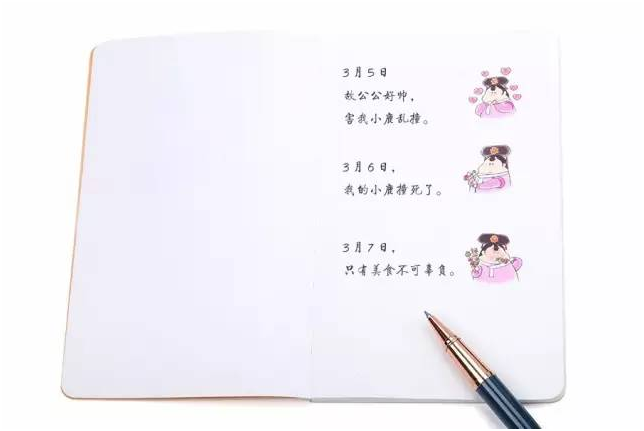 3月5日
故公公好帅，
害我小鹿乱撞。
3月6日，
我的小鹿撞死了。
3月7日，
只有美食不可辜负。